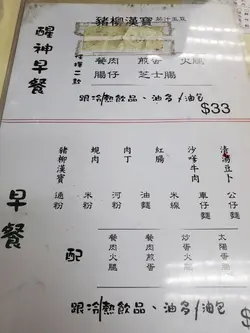 醒神早餐
豬柳漢寶
餐肉 煎蛋 火腿
腸仔 芝士腸
跟冷/熱飲品、油多/油包 $33
早餐
豬柳漢寶 肉丁 紅腸 沙嗲牛肉
通粉 米粉 河粉 油麵 米線 車仔麵 公仔麵
配 餐肉火腿 餐肉煎蛋 炒蛋火腿 太陽蛋
跟冷/熱飲品、油多/油包 $